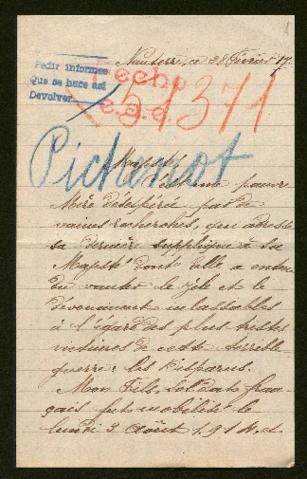 Nanterre, ce 28 Février 17.
Pedir informes
Que se hace así
Devolver
echo
e.a.e.
51371
Pichenot
Majesté
C'est une pauvre
Mère désespérée par de
vaines recherches, qui adresse
sa dernière supplique à Sa
Majesté dont elle a enten
du vanter le zèle et le
dévouement inlassables
à l'égard des plus tristes
victimes de cette terrible
guerre: les Disparus.
Mon Fils, Soldat fran
çais fut mobilisé le
lundi 3 Août 1914, et